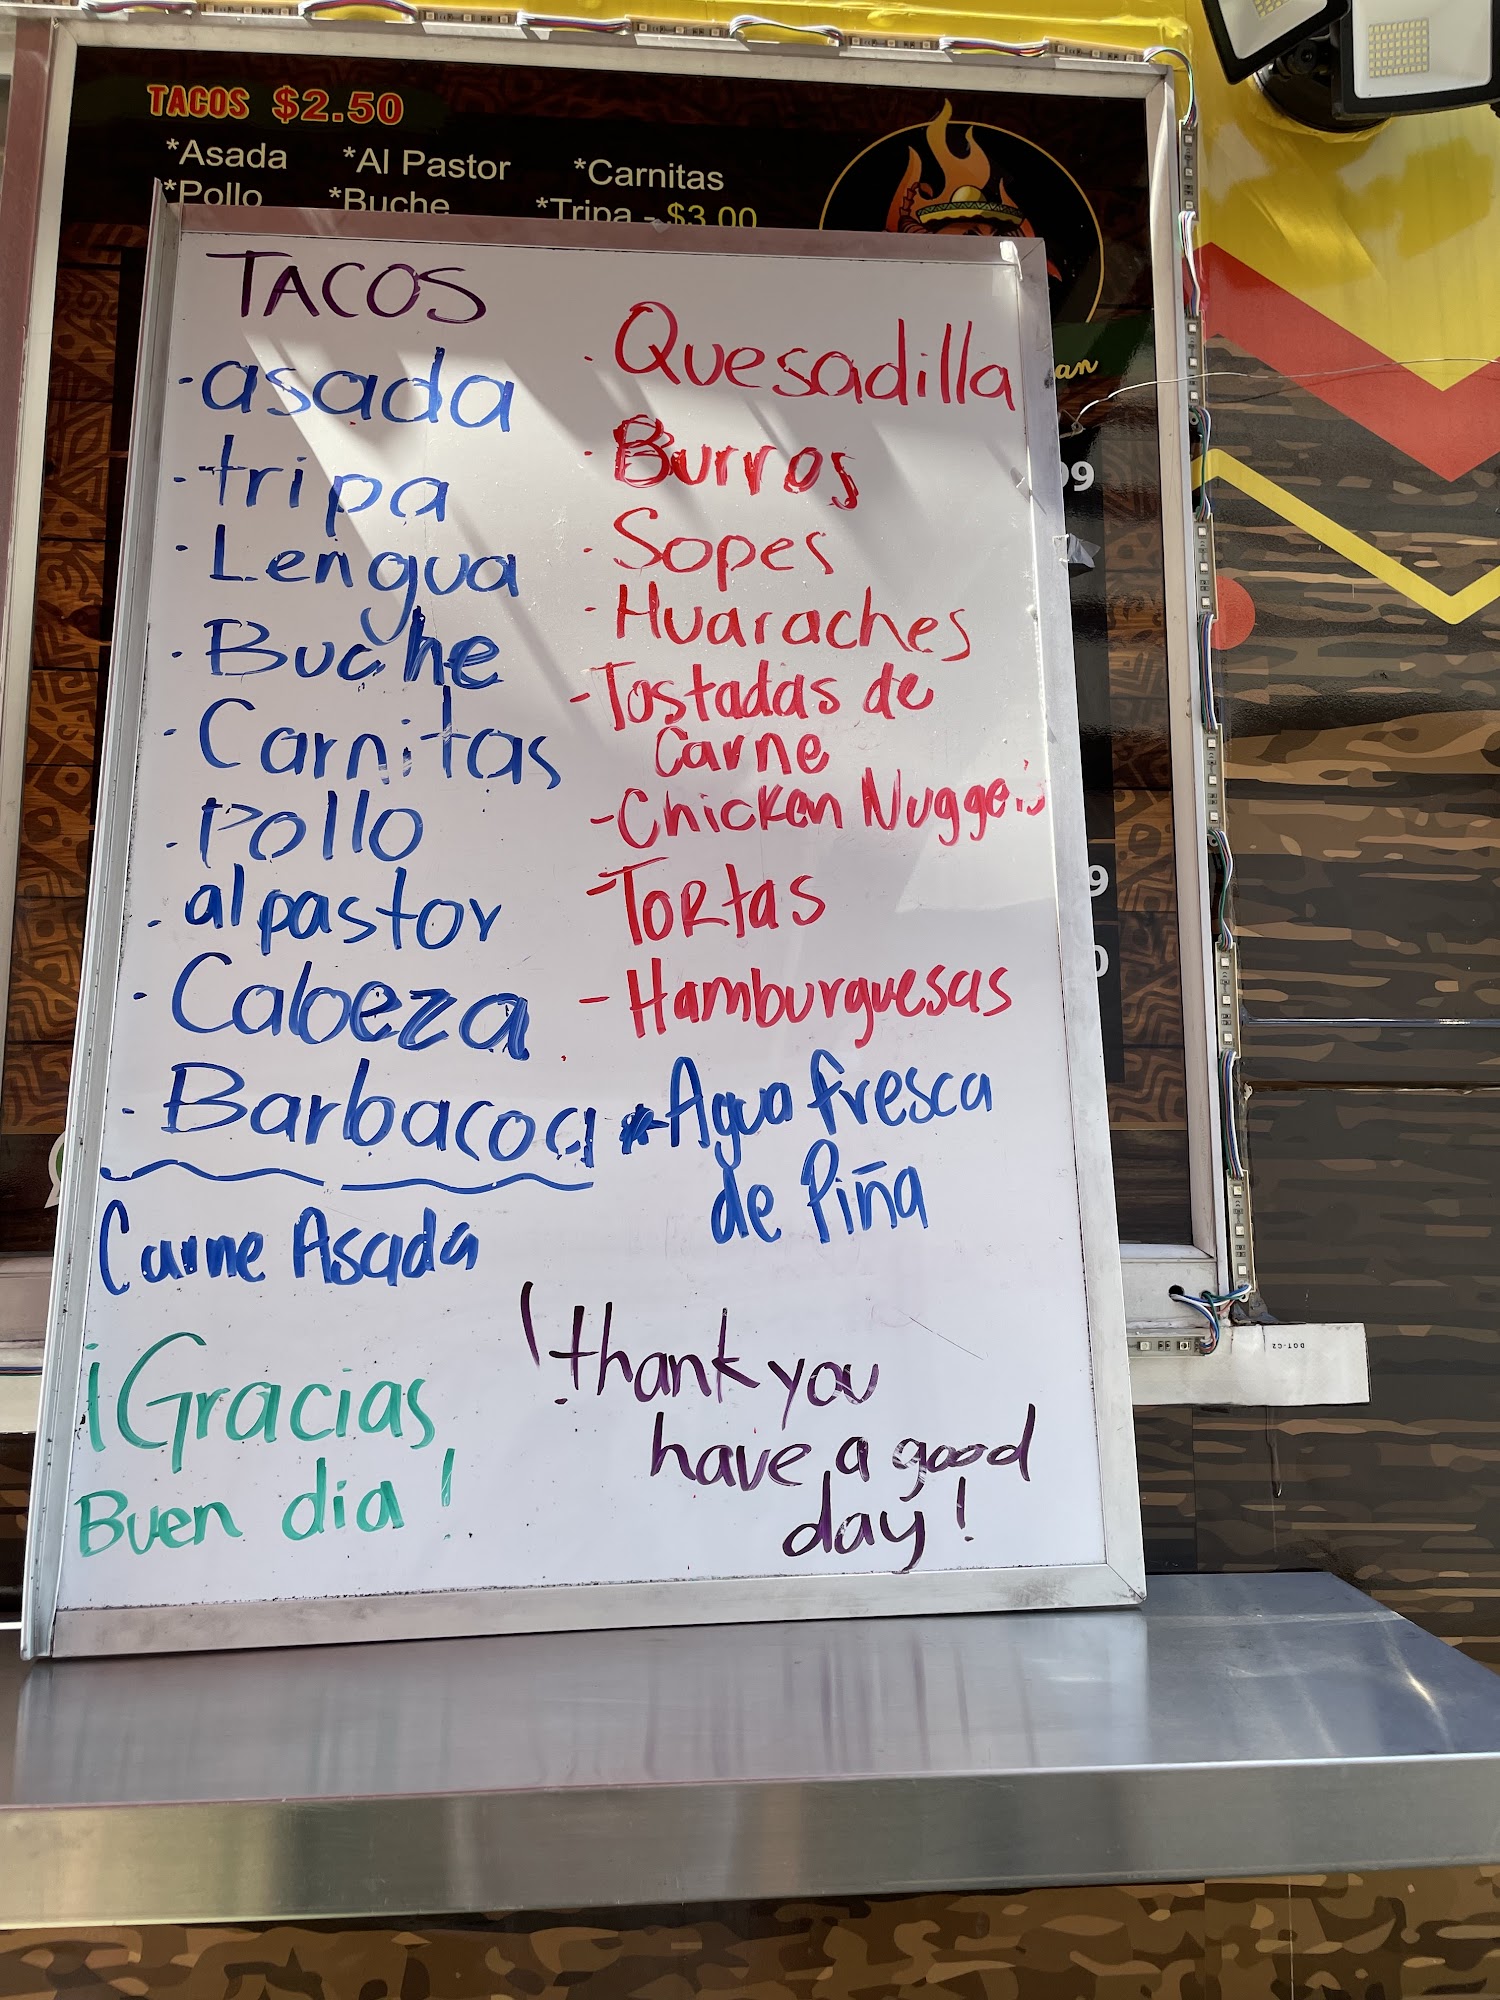 TACOS $2.50
*Asada *Al Pastor *Carnitas
*Pollo *Buche *Tripa - $3.00
TACOS
- asada
- tripa
- Lengua
- Buche
- Carnitas
- Pollo
- al pastor
- Cabeza
- Barbacoa
Carne Asada
¡Gracias
Buen dia!
- Quesadilla
- Burros
- Sopes
- Huaraches
- Tostadas de
Carne
- Chicken Nuggets
- Tortas
- Hamburguesas
* Agua fresca
de Piña
¡thank you
have a good
day!
99
9
0
DGT-C2